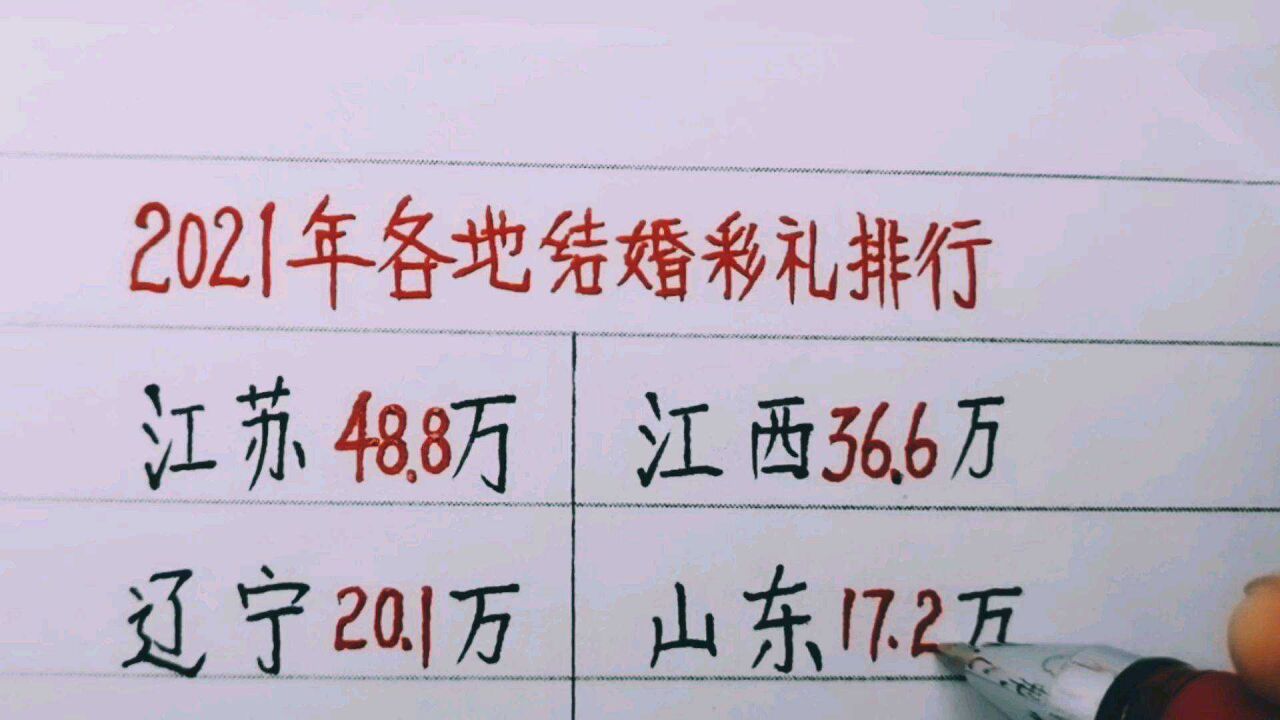 2021年各地结婚彩礼排行
江苏48.8万 江西36.6万
辽宁20.1万 山东17.2万